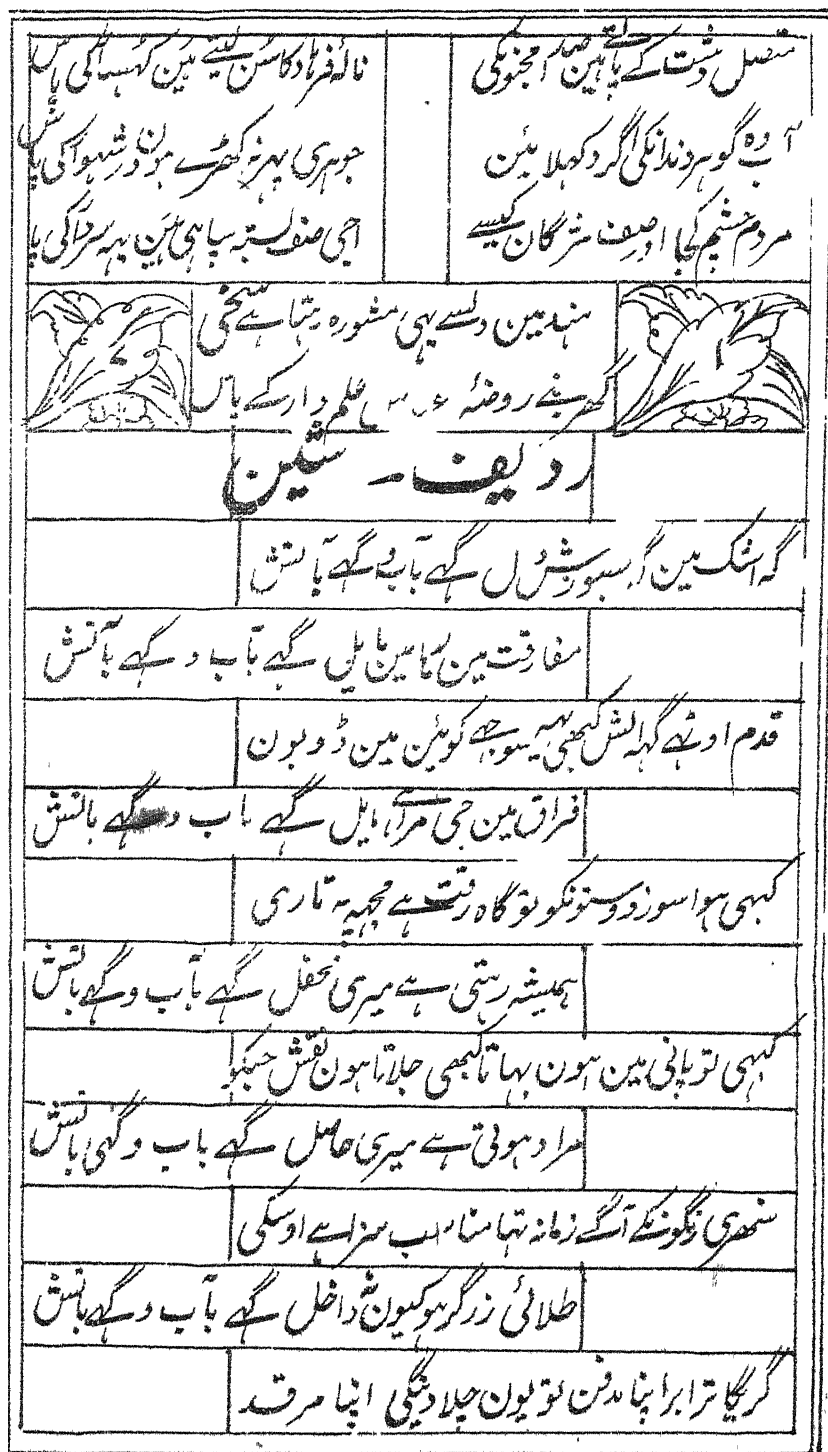 متصل دشت کے پاتے ہین صدا مجنونکی
نالۂ فرہاد کا سن لیتے ہین کہسار کی پاس
آب وہ گوہر دندانکی اگر دکھلائین
جوہری پہر نہ کھڑے ہون در شہوار کی پاس
مردم چشم کجا اور صف مژگان کیسے
اجی صف بستہ سپاہی ہین یہہ سردار کی پاس
ہند مین دلسے یہی مشورہ رہتا ہے سخی
گھر بنے روضۂ علم دار کے پاس
ردیف ۔ شین
گہ اشک مین گہ بسوزش دل گہے بآب و گہے بآتش
مفارقت مین رہا مین مایل گہے بآب و گہے بآتش
قدم اوٹہے گہہ کبھی یہہ سوجہے کوئین مین ڈوبون
فراق مین جی مرا ہے مایل گہے باب و گہے باتش
کبہی ہوا سوز دوستونکو تو گاہ رقت ہے مجہپہ تاری
ہمیشہ رہتی ہے میری محفل گہے بآب و گہے باتش
کبہی تو پانی مین ہون بہاتا کبھی جلاتا ہون نقش جبکو
مراد ہوتی ہے میری حاصل گہے باب و گہی باتش
سنھری رنگونکے آگے زمانہ تہا مناسب سزا ہے اوسکی
طلائی زرگر ہو کیون نہ داخل گہے بآب و گہے باتش
گریگا ترا برا اپنا مدفن تو یون جلا دینگی اپنا مرقد